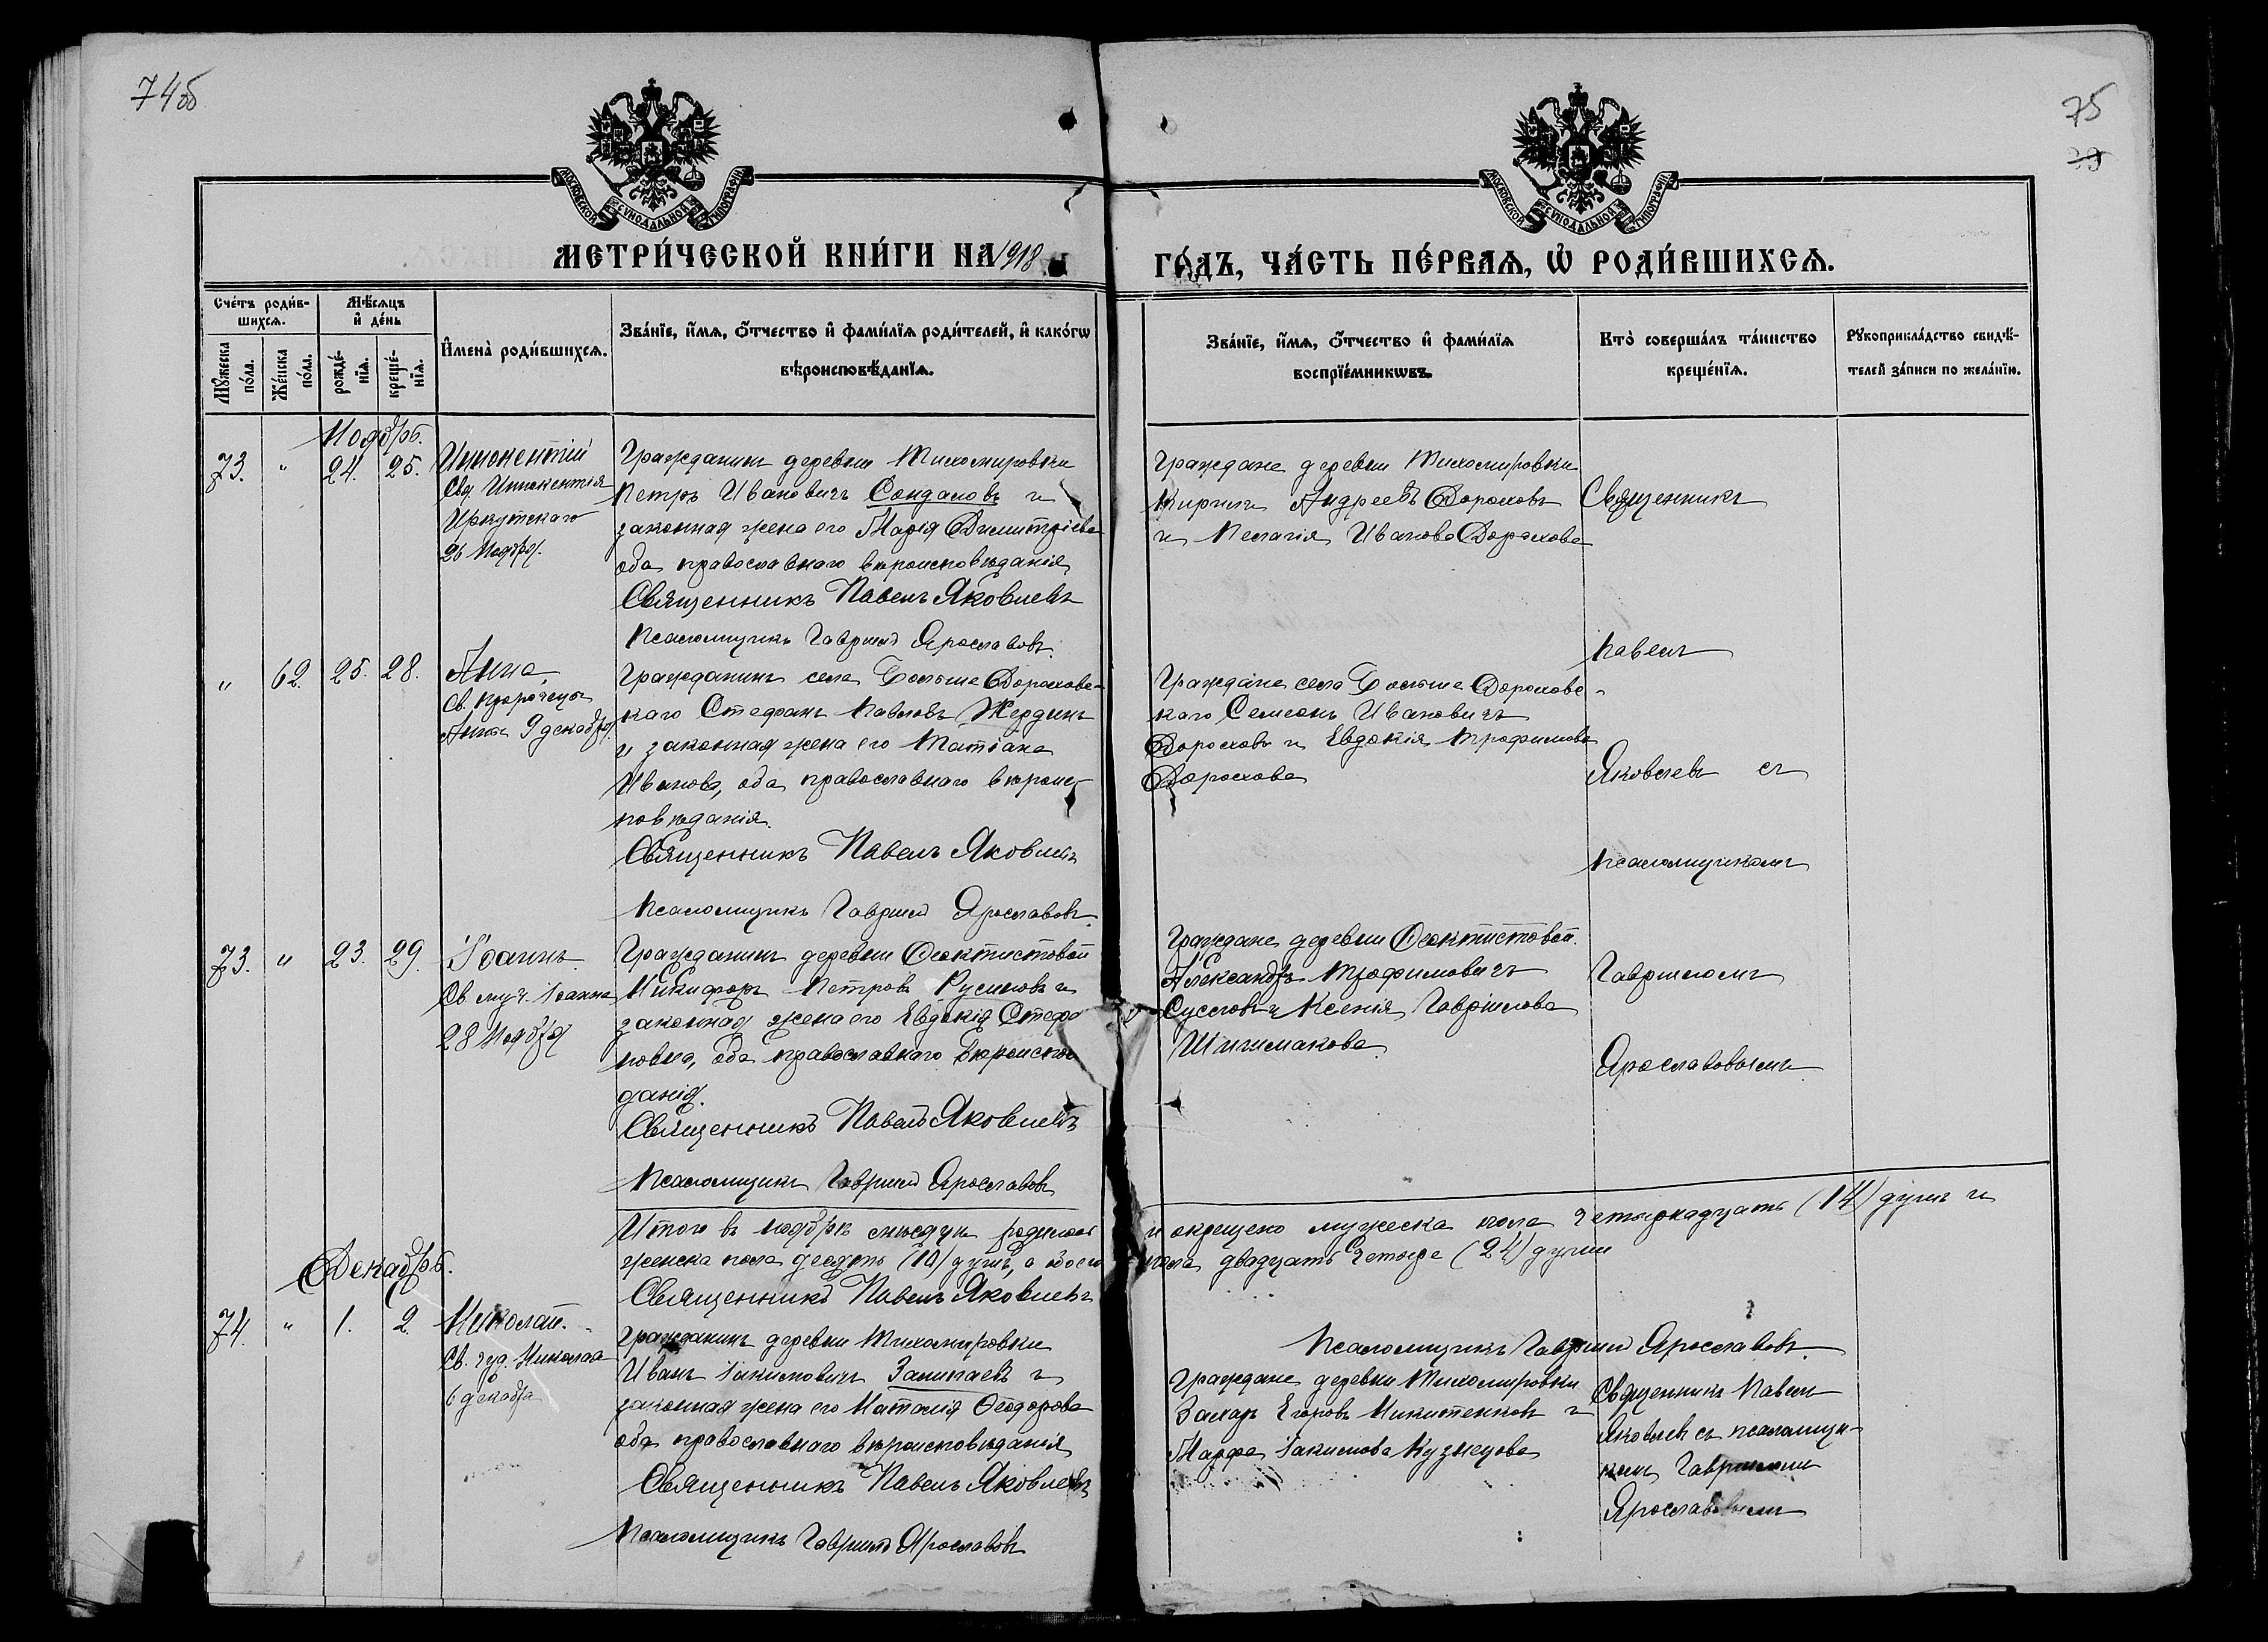 74об
75
МОСКОВСКОЙ СѴНОДАЛЬНОЙ ТИПОГРАФІИ
МОСКОВСКОЙ СѴНОДАЛЬНОЙ ТИПОГРАФІИ
МЕТРИ́ЧЕСКОЙ КНИ́ГИ НА 1918
ГО́ДЪ, ЧА́СТЬ ПЕ́РВАЯ, Ѡ҆ РОДИ́ВШИХСЯ.
Сче́тъ роди́в-
шихся.
Мѣ́сяцъ
и҆ де́нь
Мꙋ́жеска
по́ла.
Же́нска
по́ла.
рожде́-
нїя.
креще́-
нїя.
И҆мена̀ роди́вшихся.
Зва́нїе, и҆́мя, ѻ҆́тчество и҆ фами́лїя роди́телей, и҆ како́гѡ
вѣроисповѣ́данїя.
Зва́нїе, и҆́мя, ѻ҆́тчество и҆ фами́лїя
воспрїе́мникѡвъ.
Кто̀ соверша́лъ та́инство
креще́нїя.
Рꙋкоприкла́дство свидѣ́-
телей за́писи по жела́нїю.
Ноябрь.
73. " 24. 25. Иннокентій
Свт. Иннокентія
Иркутскаго
26 Ноября.
Гражданинъ деревни Тихомировки
Петръ Ивановичъ Сандаловъ и
законная жена его Марія Димитріева
оба православнаго вѣроисповѣданія
Священникъ Павелъ Яковлевъ
Псаломщикъ Гавріилъ Ярославовъ.
Граждане деревни Тихомировки
Кирилъ Андреевъ Дороховъ
и Пелагія Иванова Дорохова
Священникъ
Павелъ
Яковлевъ съ
псаломщикомъ
Гавріиломъ
Ярославовымъ
" 62. 25. 28. Анна,
Св. Пророчицы
Анны 9 декабря.
Гражданинъ села Больше Дороховс-
каго Стефанъ Павловъ Жердинъ
и законная жена его Татіана
Иванова, оба православнаго вѣроис-
повѣданія.
Священникъ Павелъ Яковлевъ
Псаломщикъ Гавріилъ Ярославовъ
Граждане села Больше Дороховс-
каго Симеонъ Ивановичъ
Дороховъ и Евдокія Трофимова
Дорохова
73. " 23. 29. Іоаннъ.
Св. муч. Іоанна
28 Ноября
Гражданинъ деревни Ѳеоктистовой
Никифоръ Петровъ Русиновъ и
законная жена его Евдокія Стефа
новна, оба православнаго вѣроиспов
данія.
Священникъ Павелъ Яковлевъ
Псаломщикъ Гавріилъ Ярославовъ
Граждане деревни Ѳеоктистовой.
Александръ Трофимовичъ
Сусловъ и Ксенія Гавріилова
Шишмакова.
Итого въ ноябрѣ мѣсяцѣ родилось и окрещено мужеска пола четырнадцать (14) душъ и
женска пола десять (10) душъ, а обоего пола двадцать четыре (24) души
Священникъ Павелъ Яковлевъ
Псаломщикъ Гавріилъ Ярославовъ.
Декабрь.
74. " 1. 2. Николай.
Св. чуд. Николая
6 декабря
Гражданинъ деревни Тихомировки
Иванъ Іакимовичъ Запипаевъ и
законная жена его Наталія Ѳеодорова
оба православнаго вѣроисповѣданія
Священникъ Павелъ Яковлевъ
Псаломщикъ Гавріилъ Ярославовъ
Граждане деревни Тихомировки
Захаръ Егоровъ Никитенковъ и
Марфа Іакимова Кузнецова
Священникъ Павелъ
Яковлевъ съ псаломщи-
комъ Гавріиломъ
Ярославовымъ